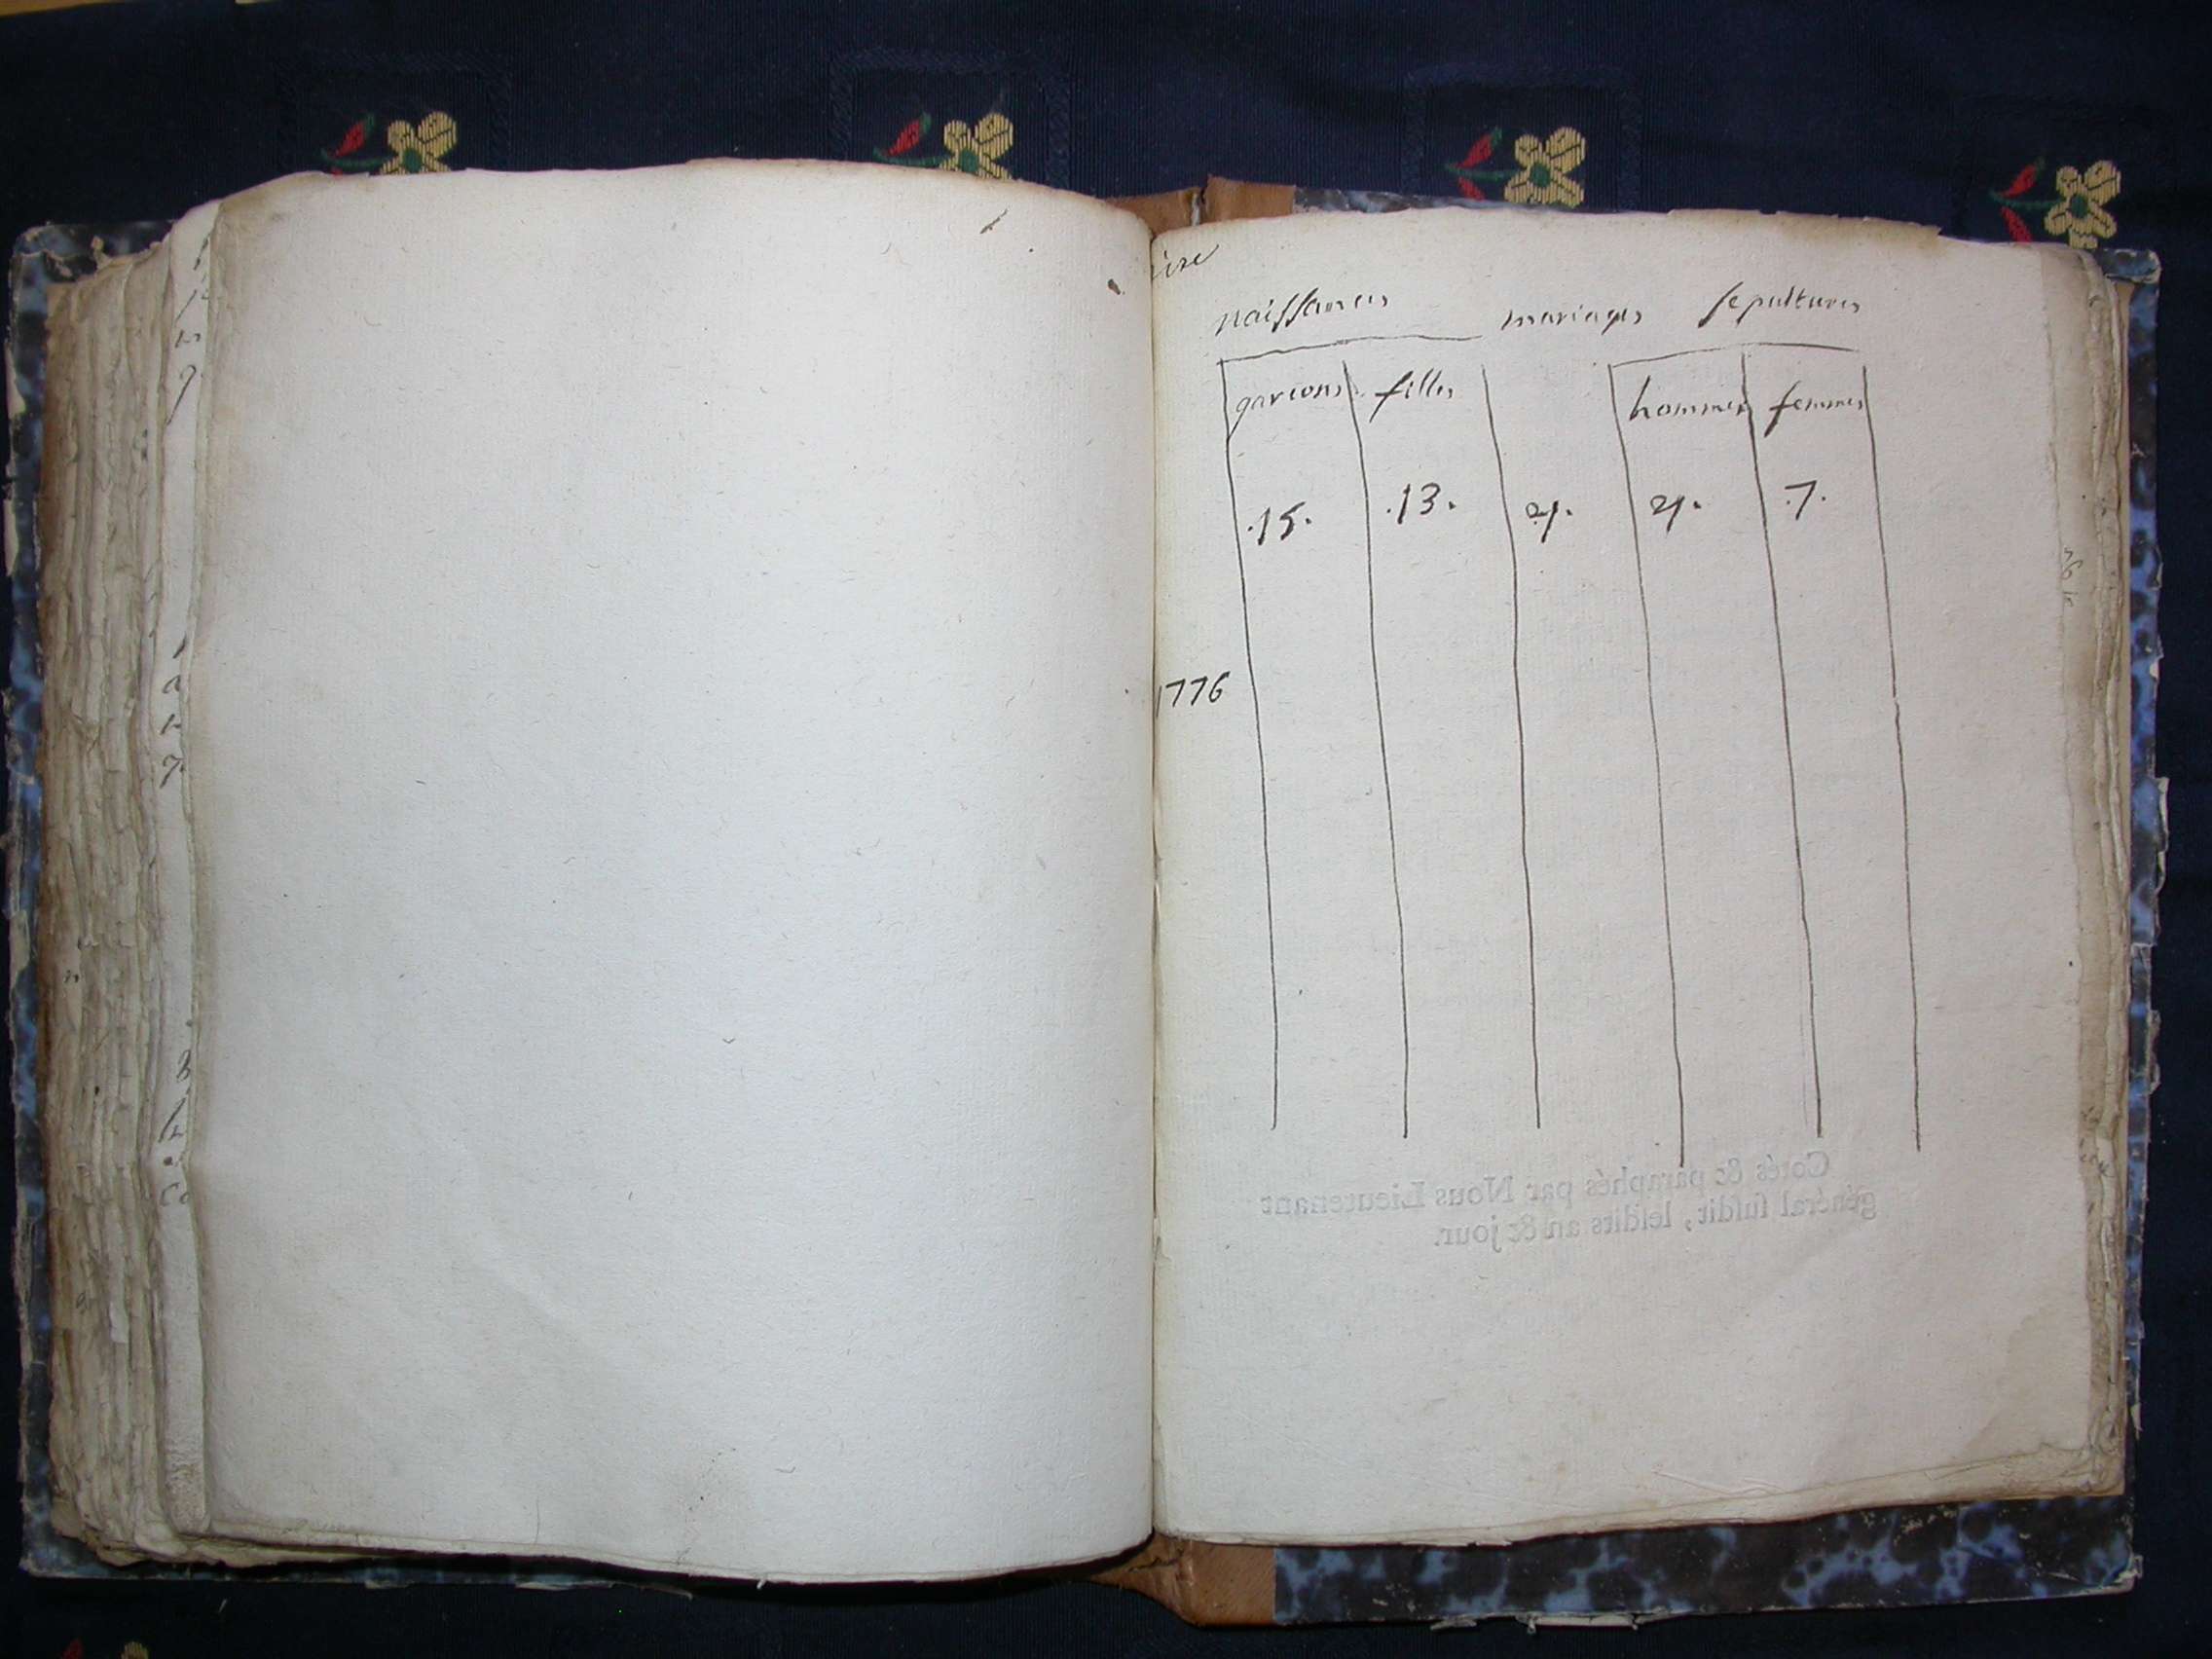 naissances mariages sepultures
garcons filles hommes femmes
.15. .13. 4. 4. .7.
1776
Cotés & paraphés par Nous Lieutenant
général susdit, lesdits an & jour.